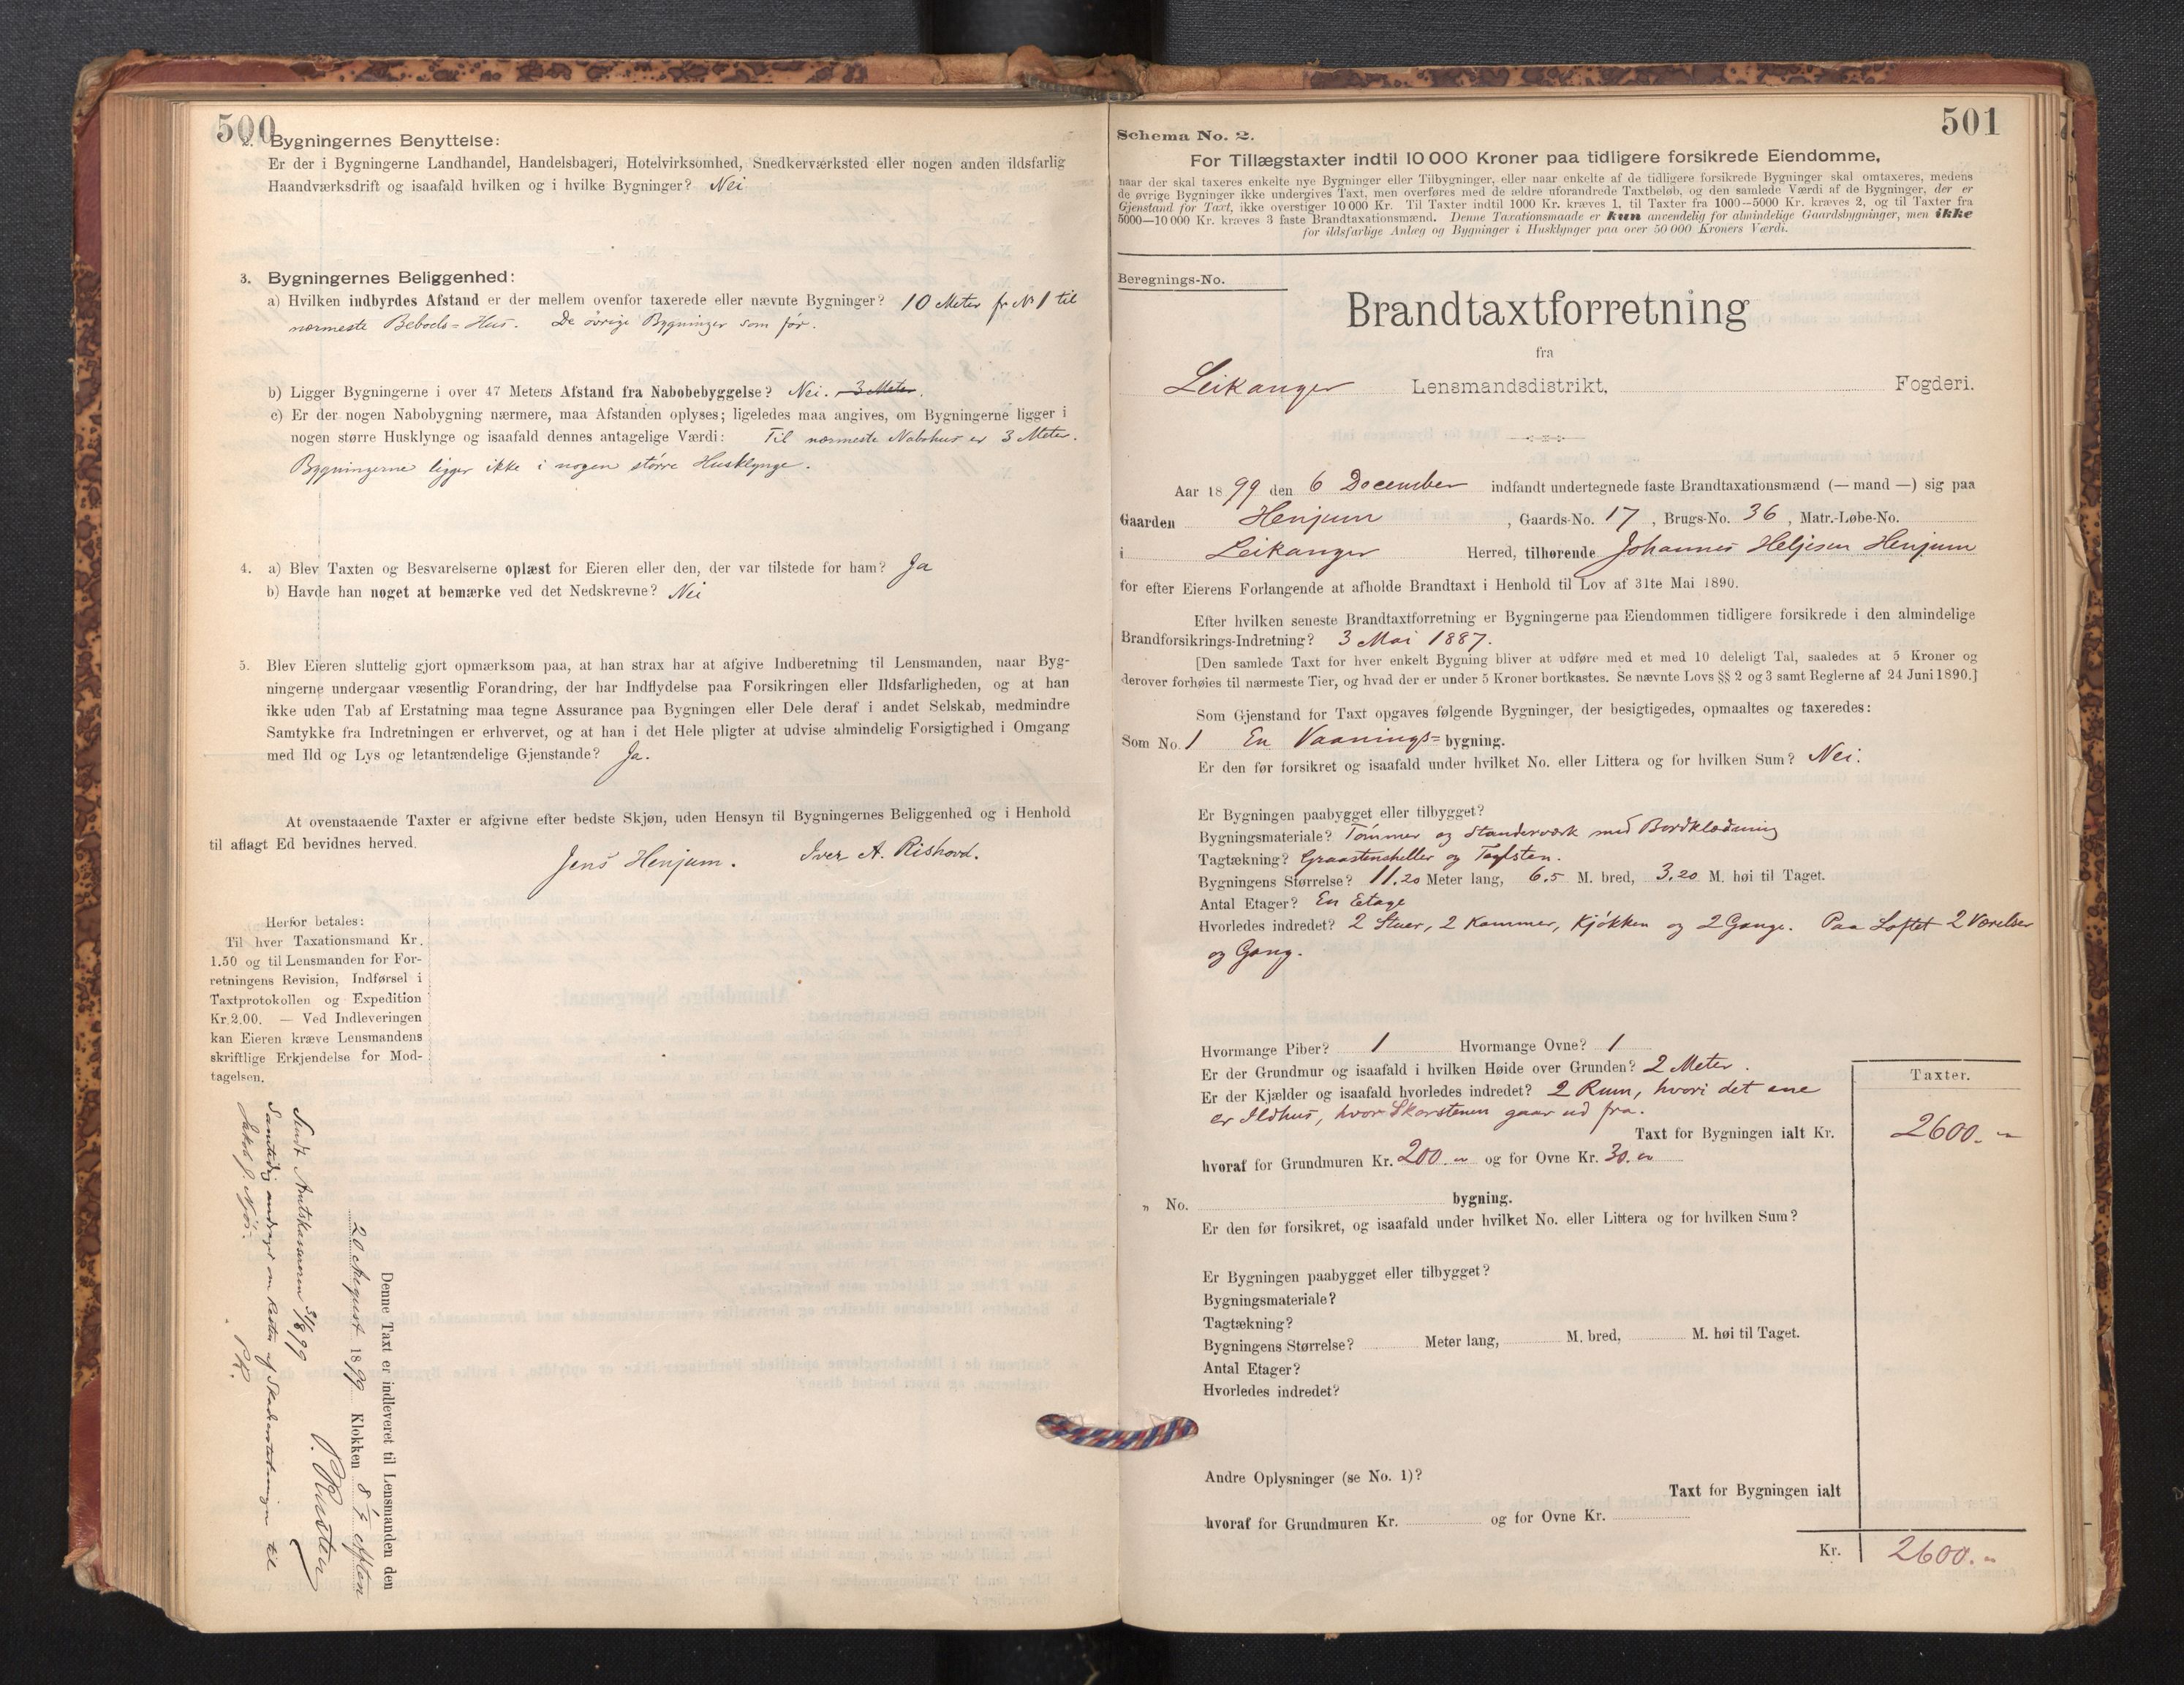 500
2. Bygningernes Benyttelse:
Er der i Bygningerne Landhandel, Handelsbageri, Hotelvirksomhed, Snedkerværksted eller nogen anden ildsfarlig
Haandværksdrift og isaafald hvilken og i hvilke Bygninger? Nei
3. Bygningernes Beliggenhed:
a) Hvilken indbyrdes Afstand er der mellem ovenfor taxerede eller nævnte Bygninger? 10 Meter fr No 1 til
nærmeste Beboels=Hus. De övrige Bygninger som för.
b) Ligger Bygningerne i over 47 Meters Afstand fra Nabobebyggelse? Nei. 3 Meter.
c) Er der nogen Nabobygning nærmere, maa Afstanden oplyses; ligeledes maa angives, om Bygningerne ligger i
nogen større Husklynge og isaafald dennes antagelige Værdi: Til nærmeste Nabohus er 3 Meter.
Bygningerne ligger ikke i nogen större Husklynge.
4. a) Blev Taxten og Besvarelserne oplæst for Eieren eller den, der var tilstede for ham? Ja
b) Havde han noget at bemærke ved det Nedskrevne? Nei
5. Blev Eieren sluttelig gjort opmærksom paa, at han strax har at afgive Indberetning til Lensmanden, naar Byg-
ningerne undergaar væsentlig Forandring, der har Indflydelse paa Forsikringen eller Ildsfarligheden, og at han
ikke uden Tab af Erstatning maa tegne Assurance paa Bygningen eller Dele deraf i andet Selskab, medmindre
Samtykke fra Indretningen er erhvervet, og at han i det Hele pligter at udvise almindelig Forsigtighed i Omgang
med Ild og Lys og letantændelige Gjenstande? Ja.
At ovenstaaende Taxter er afgivne efter bedste Skjøn, uden Hensyn til Bygningernes Beliggenhed og i Henhold
til aflagt Ed bevidnes herved.
Jens Henjum. Iver A. Rishovd.
Herfor betales:
Til hver Taxationsmand Kr.
1.50 og til Lensmanden for For-
retningens Revision, Indførsel i
Taxtprotokollen og Expedition
Kr. 2.00. — Ved Indleveringen
kan Eieren kræve Lensmandens
skriftlige Erkjendelse for Mod-
tagelsen.
Denne Taxt er indleveret til Lensmanden den
20 August 1899 Klokken 8 1/2 aften
Sendt Amtskassereren 31/8 99
Samtidig andraget om Resten af Skadeerstatningen til
501
Schema No. 2.
For Tillægstaxter indtil 10 000 Kroner paa tidligere forsikrede Eiendomme,
naar der skal taxeres enkelte nye Bygninger eller Tilbygninger, eller naar enkelte af de tidligere forsikrede Bygninger skal omtaxeres, medens
de øvrige Bygninger ikke undergives Taxt, men overføres med de ældre uforandrede Taxtbeløb, og den samlede Værdi af de Bygninger, der er
Gjenstand for Taxt, ikke overstiger 10 000 Kr. Til Taxter indtil 1000 Kr. kræves 1, til Taxter fra 1000—5000 Kr. kræves 2, og til Taxter fra
5000—10 000 Kr. kræves 3 faste Brandtaxationsmænd. Denne Taxationsmaade er kun anvendelig for almindelige Gaardsbygninger, men ikke
for ildsfarlige Anlæg og Bygninger i Husklynger paa over 50 000 Kroners Værdi.
Beregnings-No.
Brandtaxtforretning
fra
Leikanger Lensmandsdistrikt, Fogderi.
Aar 1899 den 6 December indfandt undertegnede faste Brandtaxationsmænd (— mand —) sig paa
Gaarden Henjum, Gaards-No. 17, Brugs-No. 36, Matr.-Løbe-No.
i Leikanger Herred, tilhørende Johannes Heljesen Henjum
for efter Eierens Forlangende at afholde Brandtaxt i Henhold til Lov af 31te Mai 1890.
Efter hvilken seneste Brandtaxtforretning er Bygningerne paa Eiendommen tidligere forsikrede i den almindelige
Brandforsikrings-Indretning? 3 Mai 1887.
[Den samlede Taxt for hver enkelt Bygning bliver at udføre med et med 10 deleligt Tal, saaledes at 5 Kroner og
derover forhøies til nærmeste Tier, og hvad der er under 5 Kroner bortkastes. Se nævnte Lovs §§ 2 og 3 samt Reglerne af 24 Juni 1890.]
Som Gjenstand for Taxt opgaves følgende Bygninger, der besigtigedes, opmaaltes og taxeredes:
Som No. 1 En Vaanings=bygning.
Er den før forsikret og isaafald under hvilket No. eller Littera og for hvilken Sum? Nei.
Er Bygningen paabygget eller tilbygget?
Bygningsmateriale? Tömmer og Standerværk med Bordklædning
Tagtækning? Graastensheller og Taglsten.
Bygningens Størrelse? 11.20 Meter lang, 6.5 M. bred, 3.20 M. høi til Taget.
Antal Etager? En Etage
Hvorledes indredet? 2 Stuer, 2 Kammer, Kjökken og 2 Gange. Paa Loftet 2 Værelser
og Gang.
Hvormange Piber? 1 Hvormange Ovne? 1
Er der Grundmur og isaafald i hvilken Høide over Grunden? 2 Meter.
Taxter.
Er der Kjælder og isaafald hvorledes indredet? 2 Rum, hvori det ene
er Ildhus, hvor Skorstenen gaar ud fra.
Taxt for Bygningen ialt Kr. 2600.-
hvoraf for Grundmuren Kr. 200. og for Ovne Kr. 30.
" No. bygning.
Er den før forsikret, og isaafald under hvilket No. eller Littera og for hvilken Sum?
Er Bygningen paabygget eller tilbygget?
Bygningsmateriale?
Tagtækning?
Bygningens Størrelse? Meter lang, M. bred, M. høi til Taget.
Antal Etager?
Hvorledes indredet?
Andre Oplysninger (se No. 1)?
Taxt for Bygningen ialt
hvoraf for Grundmuren Kr. og for Ovne Kr.
Kr. 2600.-